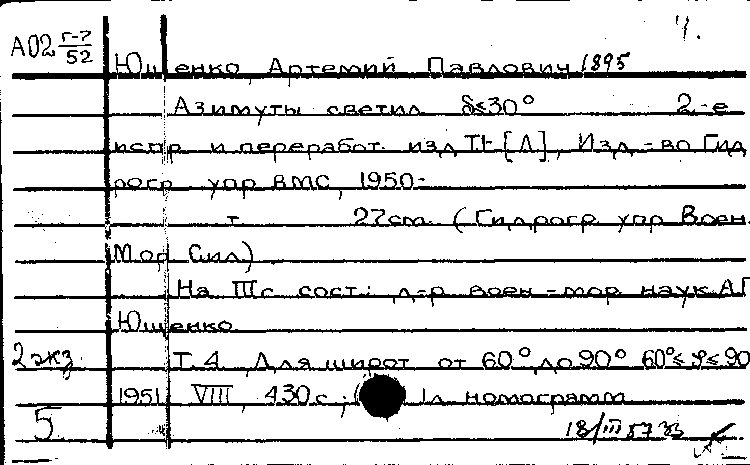 Ч.
А02 Г-7/52
Ющенко, Артемий Павлович 1895
Азимуты светил δ≤30° 2-е
испр и переработ. изд, Т1- [Л], Изд-во Гид
рогр упр ВМС, 1950-
т. 27см. (Гидрогр упр Воен.
Мор Сил)
На IIIс сост.: д-р воен-мор наук АП
Ющенко
2 экз. Т. 4 Для широт от 60° до 90° 60°≤ φ ≤ 90
1951 VIII, 430с., 1л номограмм
5 18/III 57